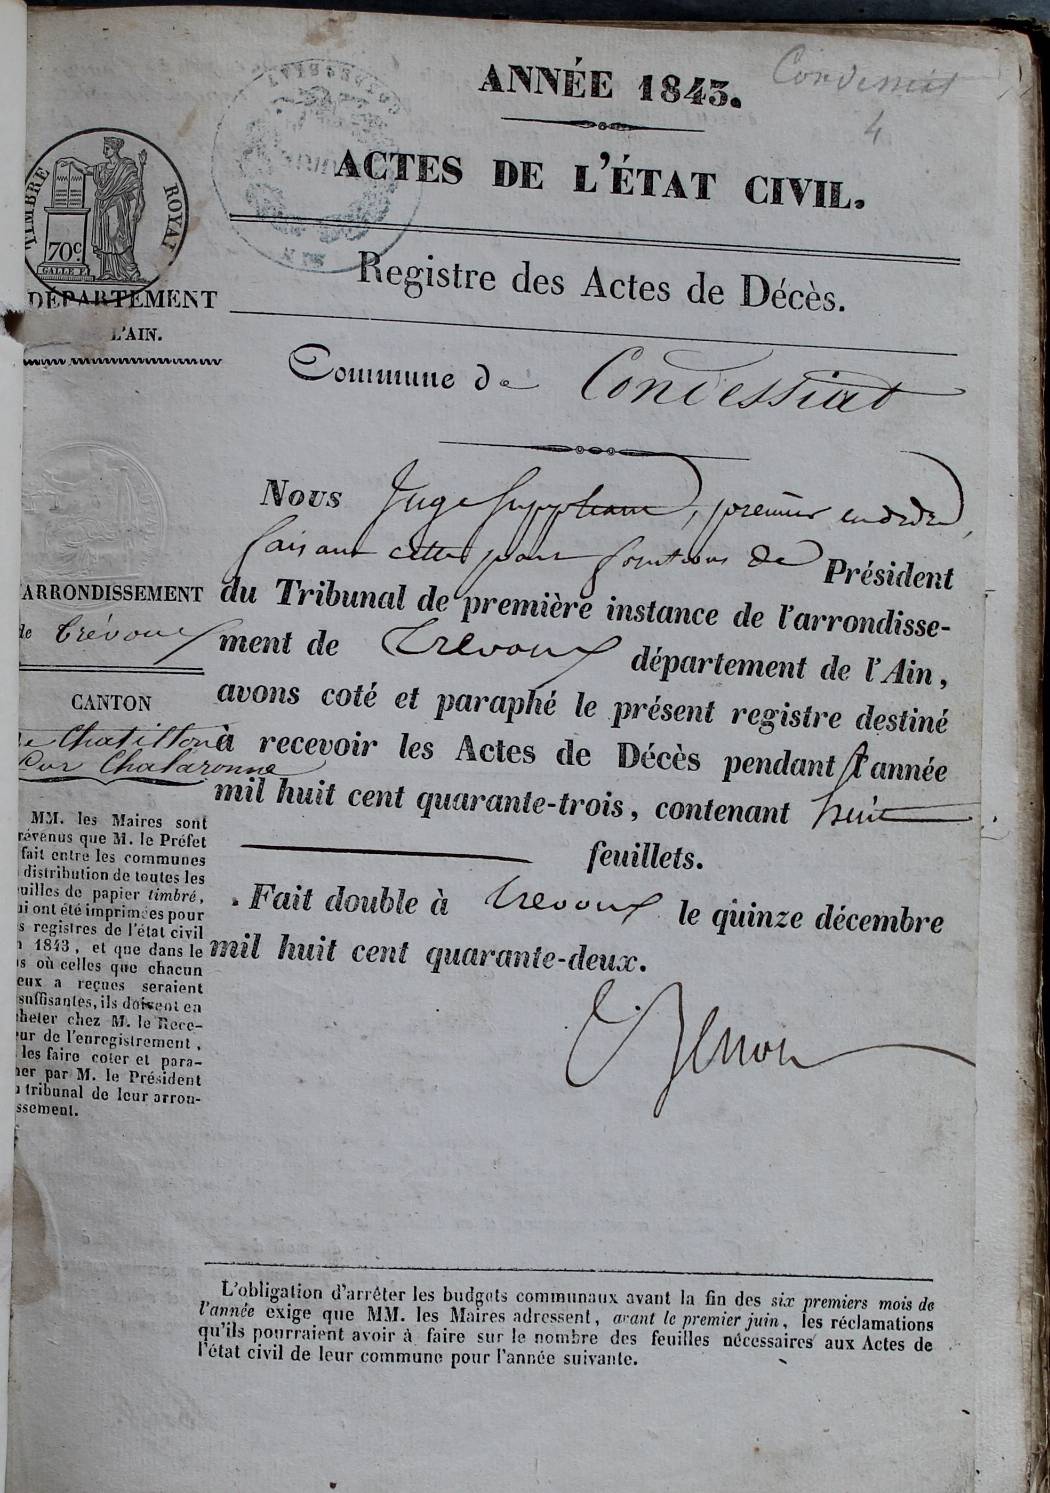 Condessiat
4
ANNÉE 1843.
ACTES DE L'ÉTAT CIVIL.
Registre des Actes de Décès.
Commune de Condessiat
TIMBRE ROYAL
70c
DÉPARTEMENT
L'AIN.
ARRONDISSEMENT
de Trévoux
CANTON
de Chatillon
sur Chalaronne
MM. les Maires sont
révenus que M. le Préfet
fait entre les communes
distribution de toutes les
uilles de papier timbré,
ui ont été imprimées pour
s registres de l'état civil
n 1843, et que dans le
s où celles que chacun
eux a reçues seraient
suffisantes, ils doivent en
cheter chez M. le Rece-
ur de l'enregistrement,
les faire coter et para-
her par M. le Président
u tribunal de leur arron-
ssement.
Nous Juge Suppléant, premier en ordre,
faisant cette part fonctions de Président
du Tribunal de première instance de l'arrondisse-
ment de Trevoux département de l'Ain,
avons coté et paraphé le présent registre destiné
à recevoir les Actes de Décès pendant l'année
mil huit cent quarante-trois, contenant huit
feuillets.
Fait double à Trevoux le quinze décembre
mil huit cent quarante-deux.
L'obligation d'arrêter les budgets communaux avant la fin des six premiers mois de
l'année exige que MM. les Maires adressent, avant le premier juin, les réclamations
qu'ils pourraient avoir à faire sur le nombre des feuilles nécessaires aux Actes de
l'état civil de leur commune pour l'année suivante.